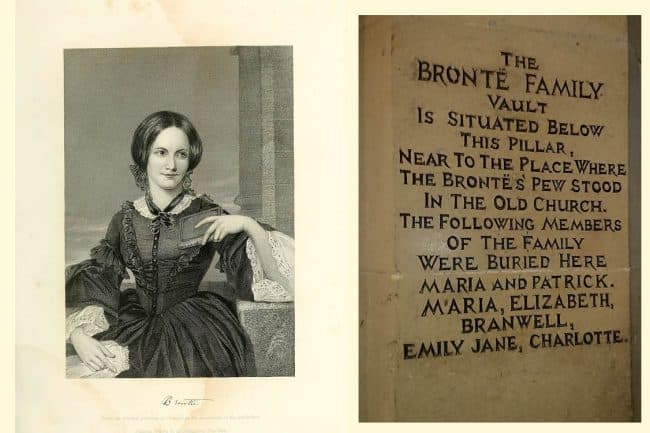 Brontë
THE
BRONTË FAMILY
VAULT
IS SITUATED BELOW
THIS PILLAR,
NEAR TO THE PLACE WHERE
THE BRONTËS' PEW STOOD
IN THE OLD CHURCH.
THE FOLLOWING MEMBERS
OF THE FAMILY
WERE BURIED HERE
MARIA AND PATRICK.
MARIA, ELIZABETH,
BRANWELL,
EMILY JANE, CHARLOTTE.